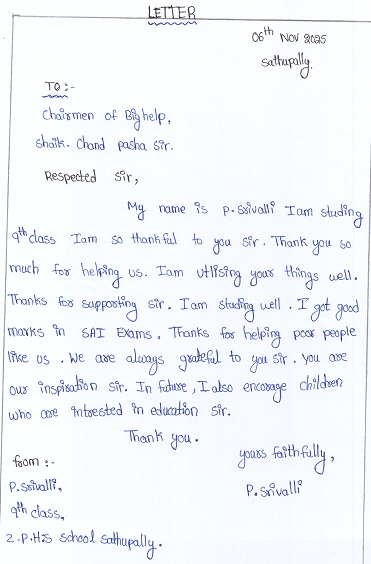 LETTER
06th Nov 2025
Sathupally.
TO :-
Chairmen of Big help,
Shaik. Chand pasha sir.
Respected Sir,
My name is P. Srivalli Iam studing
9th class Iam so thankful to you sir. Thank you so
much for helping us. Iam utlising your things well.
Thanks for supporting sir. Iam studing well. I got good
marks in SAI Exams. Thanks for helping poor people
like us. We are always grateful to you sir. you are
our inspiration sir. In future, I also encorage children
who are intrested in education sir.
Thank you.
yours faithfully,
P. Srivalli
from :-
P. Srivalli,
9th class,
Z.P.H.S school sathupally.